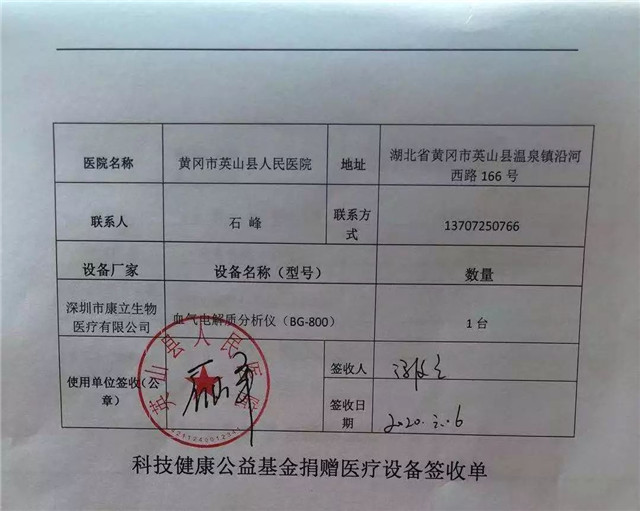 医院名称
黄冈市英山县人民医院
地址
湖北省黄冈市英山县温泉镇沿河
西路 166 号
联系人
石 峰
联系方
式
13707250766
设备厂家
设备名称（型号）
数量
深圳市康立生物
医疗有限公司
血气电解质分析仪（BG-800）
1 台
使用单位签收（公
章）
英山县人民医院
签收人
签收日
期
科技健康公益基金捐赠医疗设备签收单